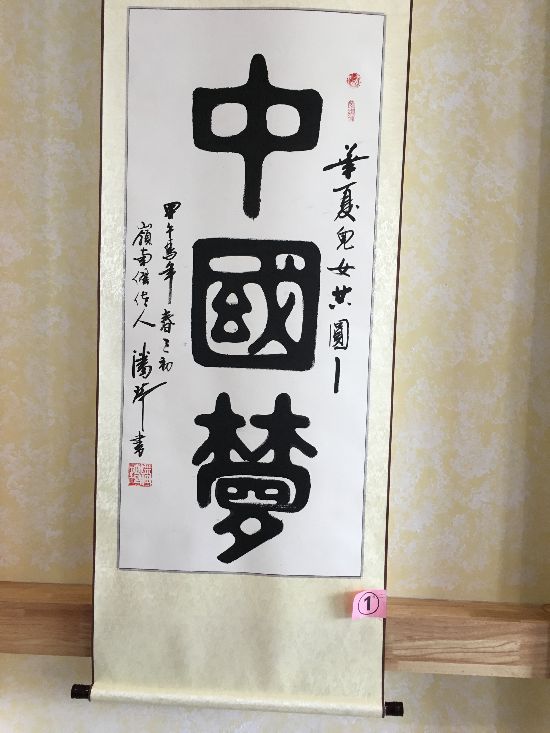 華夏兒女共圓—
中國夢
甲午馬年春之初
嶺南
人潘
書
①